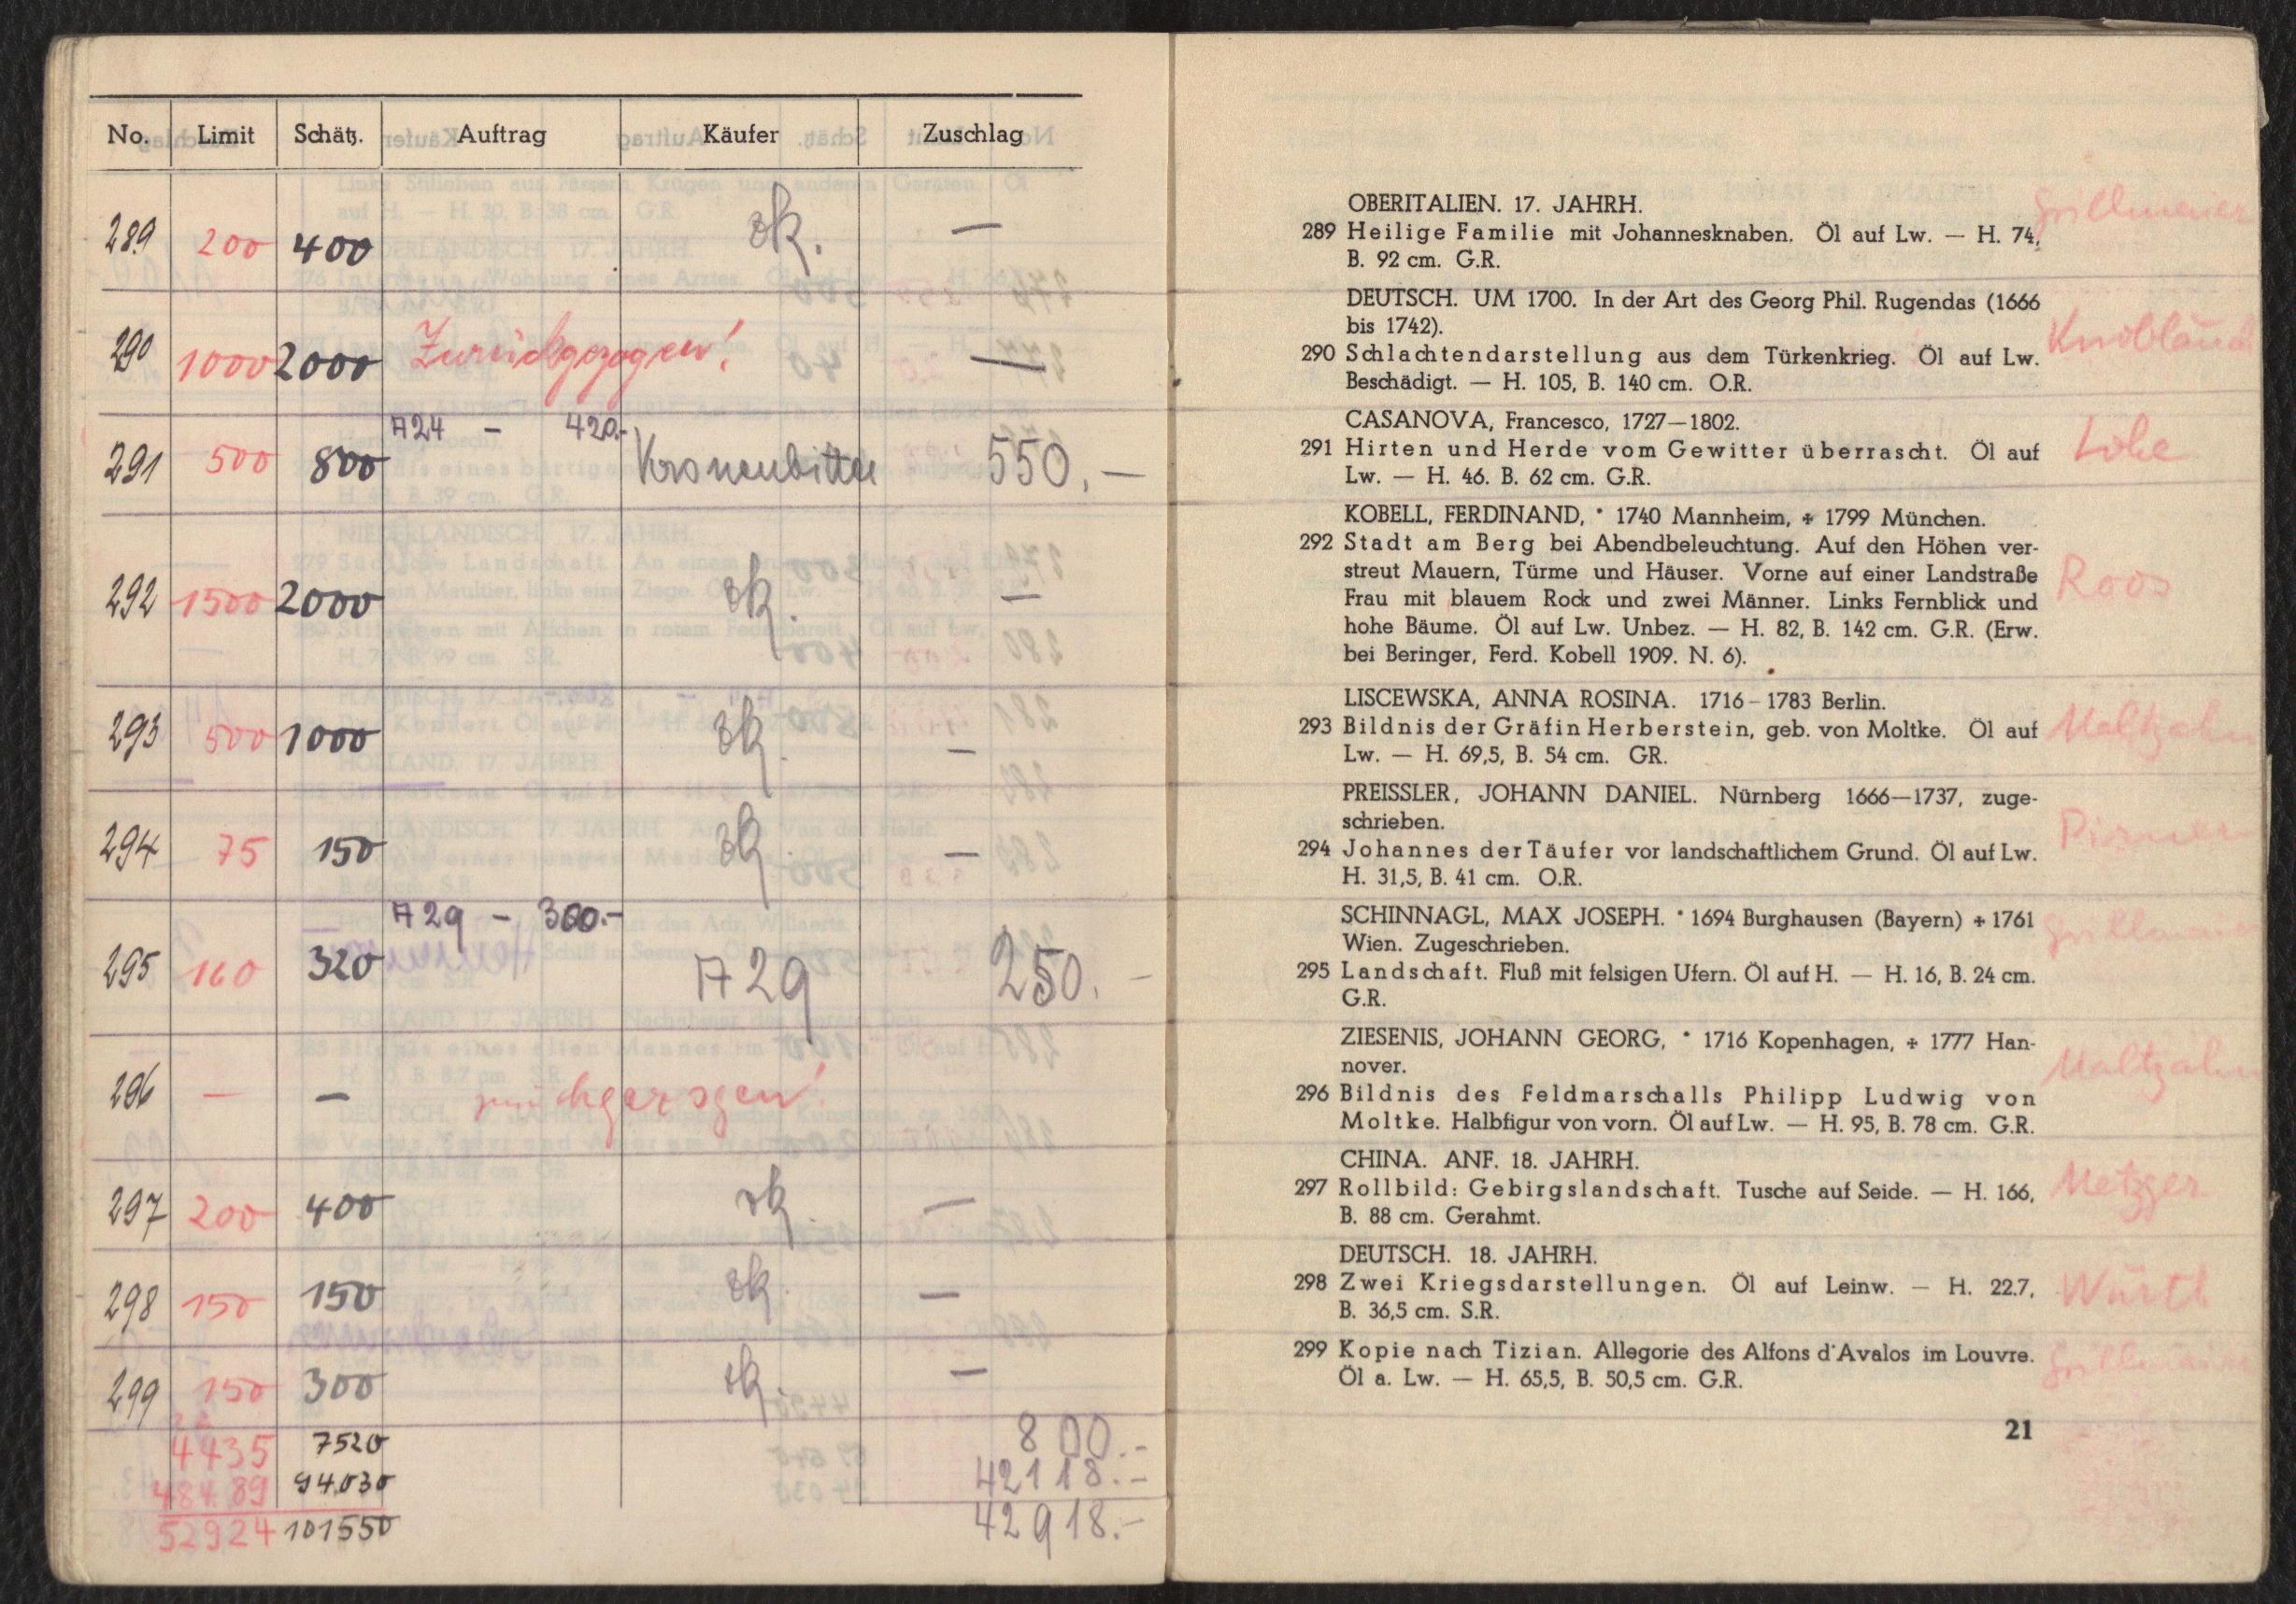 No. Limit Schätz. Auftrag Käufer Zuschlag
289 200 400 zk. —
290 1000 2000 Zurückgezogen! —
A24 — 420.-
291 500 800 Kronenbitter 550.—
292 1500 2000 zk. —
293 500 1000 zk. —
294 75 150 zk. —
A29 — 300.-
295 160 320 A29 250.—
296 — — zurückgezogen!
297 200 400 zk. —
298 150 150 zk. —
299 150 300 zk. —
4435 7520 800.-
48489 94030 42118.-
52924 101550 42918.-
OBERITALIEN. 17. JAHRH.
289 Heilige Familie mit Johannesknaben. Öl auf Lw. — H. 74,
B. 92 cm. G.R.
DEUTSCH. UM 1700. In der Art des Georg Phil. Rugendas (1666
bis 1742).
Knoblauch
290 Schlachtendarstellung aus dem Türkenkrieg. Öl auf Lw.
Beschädigt. — H. 105, B. 140 cm. O.R.
CASANOVA, Francesco, 1727—1802.
291 Hirten und Herde vom Gewitter überrascht. Öl auf
Lohe
Lw. — H. 46. B. 62 cm. G.R.
KOBELL, FERDINAND, * 1740 Mannheim, + 1799 München.
292 Stadt am Berg bei Abendbeleuchtung. Auf den Höhen ver-
streut Mauern, Türme und Häuser. Vorne auf einer Landstraße
Roos
Frau mit blauem Rock und zwei Männer. Links Fernblick und
hohe Bäume. Öl auf Lw. Unbez. — H. 82, B. 142 cm. G.R. (Erw.
bei Beringer, Ferd. Kobell 1909. N. 6).
LISCEWSKA, ANNA ROSINA. 1716–1783 Berlin.
293 Bildnis der Gräfin Herberstein, geb. von Moltke. Öl auf
Maltzahn
Lw. — H. 69,5, B. 54 cm. GR.
PREISSLER, JOHANN DANIEL. Nürnberg 1666—1737, zuge-
schrieben.
294 Johannes der Täufer vor landschaftlichem Grund. Öl auf Lw.
H. 31,5, B. 41 cm. O.R.
SCHINNAGL, MAX JOSEPH. * 1694 Burghausen (Bayern) + 1761
Wien. Zugeschrieben.
295 Landschaft. Fluß mit felsigen Ufern. Öl auf H. — H. 16, B. 24 cm.
G.R.
ZIESENIS, JOHANN GEORG, * 1716 Kopenhagen, + 1777 Han-
nover.
Maltzahn
296 Bildnis des Feldmarschalls Philipp Ludwig von
Moltke. Halbfigur von vorn. Öl auf Lw. — H. 95, B. 78 cm. G.R.
CHINA. ANF. 18. JAHRH.
297 Rollbild: Gebirgslandschaft. Tusche auf Seide. — H. 166,
Metzger
B. 88 cm. Gerahmt.
DEUTSCH. 18. JAHRH.
298 Zwei Kriegsdarstellungen. Öl auf Leinw. — H. 22.7,
Würth
B. 36,5 cm. S.R.
299 Kopie nach Tizian. Allegorie des Alfons d'Avalos im Louvre.
Öl a. Lw. — H. 65,5, B. 50,5 cm. G.R.
21